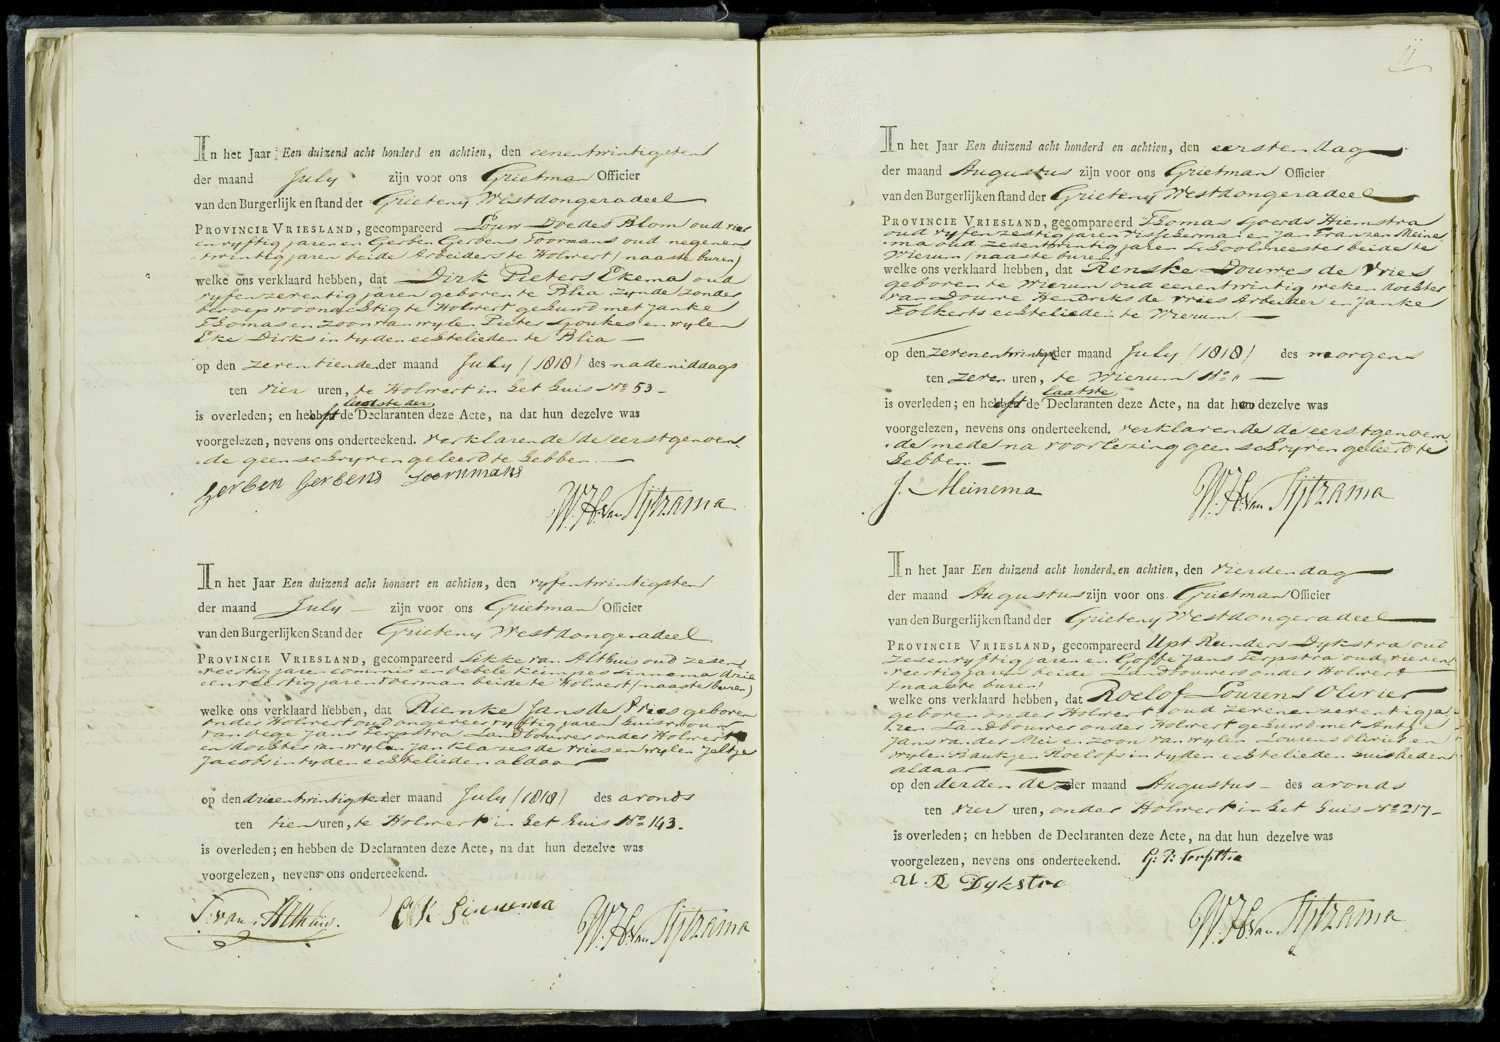 In het Jaar Een duizend acht honderd en achtien, den eenentwintigsten
der maand July zijn voor ons Grietman Officier
van den Burgerlijken stand der Grieteny Westdongeradeel
PROVINCIE VRIESLAND, gecompareerd Douwe Doedes Blom oud vier
en vyftig jaren en Gerben Gerbens Toormans oud negenen
twintig jaren beide Arbeiders te Holwert (naaste buren)
welke ons verklaard hebben, dat Dirk Pieters Ekema oud
vyfenzeventig jaren geboren te Blia zynde zonder
beroep woonachtig te Holwert gehuwd met Janke
Thomas en zoon van wylen Pieter Sjoukes en wylen
Eke Dirks in tyden echtelieden te Blia —
op den zeventienden der maand July (1818) des nademiddags
ten vier uren, te Holwert in het huis No 53 —
is overleden; en heeft de laatste der Declaranten deze Acte, na dat hun dezelve was
voorgelezen, nevens ons onderteekend. verklarende de eerstgenoem
de geen schryven geleerd te hebben —
Gerben Gerbens Toornmans
W. H. van Sijtzama
In het Jaar Een duizend acht honderd en achtien, den vyfentwintigsten
der maand July — zijn voor ons Grietman Officier
van den Burgerlijken Stand der Grieteny Westdongeradeel
PROVINCIE VRIESLAND, gecompareerd Sikke van Althuis oud zesen
veertig jaren commis en Eebele Kempes Sinnema drie
en veertig jaren Voerman beide te Holwert (naaste buren)
welke ons verklaard hebben, dat Riemke Jans de Vries geboren
onder Holwert oud ongeveer vyftig jaren huisvrouw
van Sege Jans Terpstra Landbouwer onder Holwert
en dochter van wylen Jan Klazes de Vries en wylen Jeltje
Jacobs in tyden echtelieden aldaar
op den drieentwintigsten der maand July (1818) des avonds
ten tien uren, te Holwert in het huis No 143.
is overleden; en hebben de Declaranten deze Acte, na dat hun dezelve was
voorgelezen, nevens ons onderteekend.
S. van Althuis. E K Sinnema
W. H. van Sijtzama
11
In het Jaar Een duizend acht honderd en achtien, den eersten dag
der maand Augustus zijn voor ons Grietman Officier
van den Burgerlijken stand der Grieteny Westdongeradeel
PROVINCIE VRIESLAND, gecompareerd Thomas Goerds Hiemstra
oud vyfenzestig jaren Visscherman en Jan Franzen Meine
ma oud zesentwintig jaren Schoolmeester beide te
Wierum (naaste buren
welke ons verklaard hebben, dat Renske Douwes de Vries
geboren te Wierum oud eenentwintig weken dochter
van Douwe Hendriks de Vries Arbeider en Janke
Folkerts echtelieden te Wierum —
op den zevenentwintigsten der maand July (1818) des morgens
ten zeven uren, te Wierum No „ —
is overleden; en heeft de laatste Declaranten deze Acte, na dat hen dezelve was
voorgelezen, nevens ons onderteekend. verklarende de eerstgenoem
de mede na voorlezing geen schryven geleerd te
hebben —
J. Meinema
W. H. van Sijtzama
In het Jaar Een duizend acht honderd en achtien, den vierden dag
der maand Augustus zijn voor ons Grietman Officier
van den Burgerlijken stand der Grieteny Westdongeradeel
PROVINCIE VRIESLAND, gecompareerd Upt Reinders Dykstra oud
zesenvyftig jaren en Goffe Jans Terpstra oud vieren
veertig jaren beide Landbouwers onder Holwert
(naaste buren)
welke ons verklaard hebben, dat Roelof Lourens Olivier
geboren onder Holwert oud zevenenzeventig ja
ren Landbouwer onder Holwert gehuwd met Antje
Jans van der Mei en zoon van wylen Lourens Olivier en
wylen Baukjen Roelofs in tyden echtelieden
aldaar
op den derden dezer der maand Augustus — des avonds
ten vier uren, onder Holwert in het huis No 217 —
is overleden; en hebben de Declaranten deze Acte, na dat hun dezelve was
voorgelezen, nevens ons onderteekend. G: J: Terpstra
U. R Dykstra
W. H. van Sijtzama